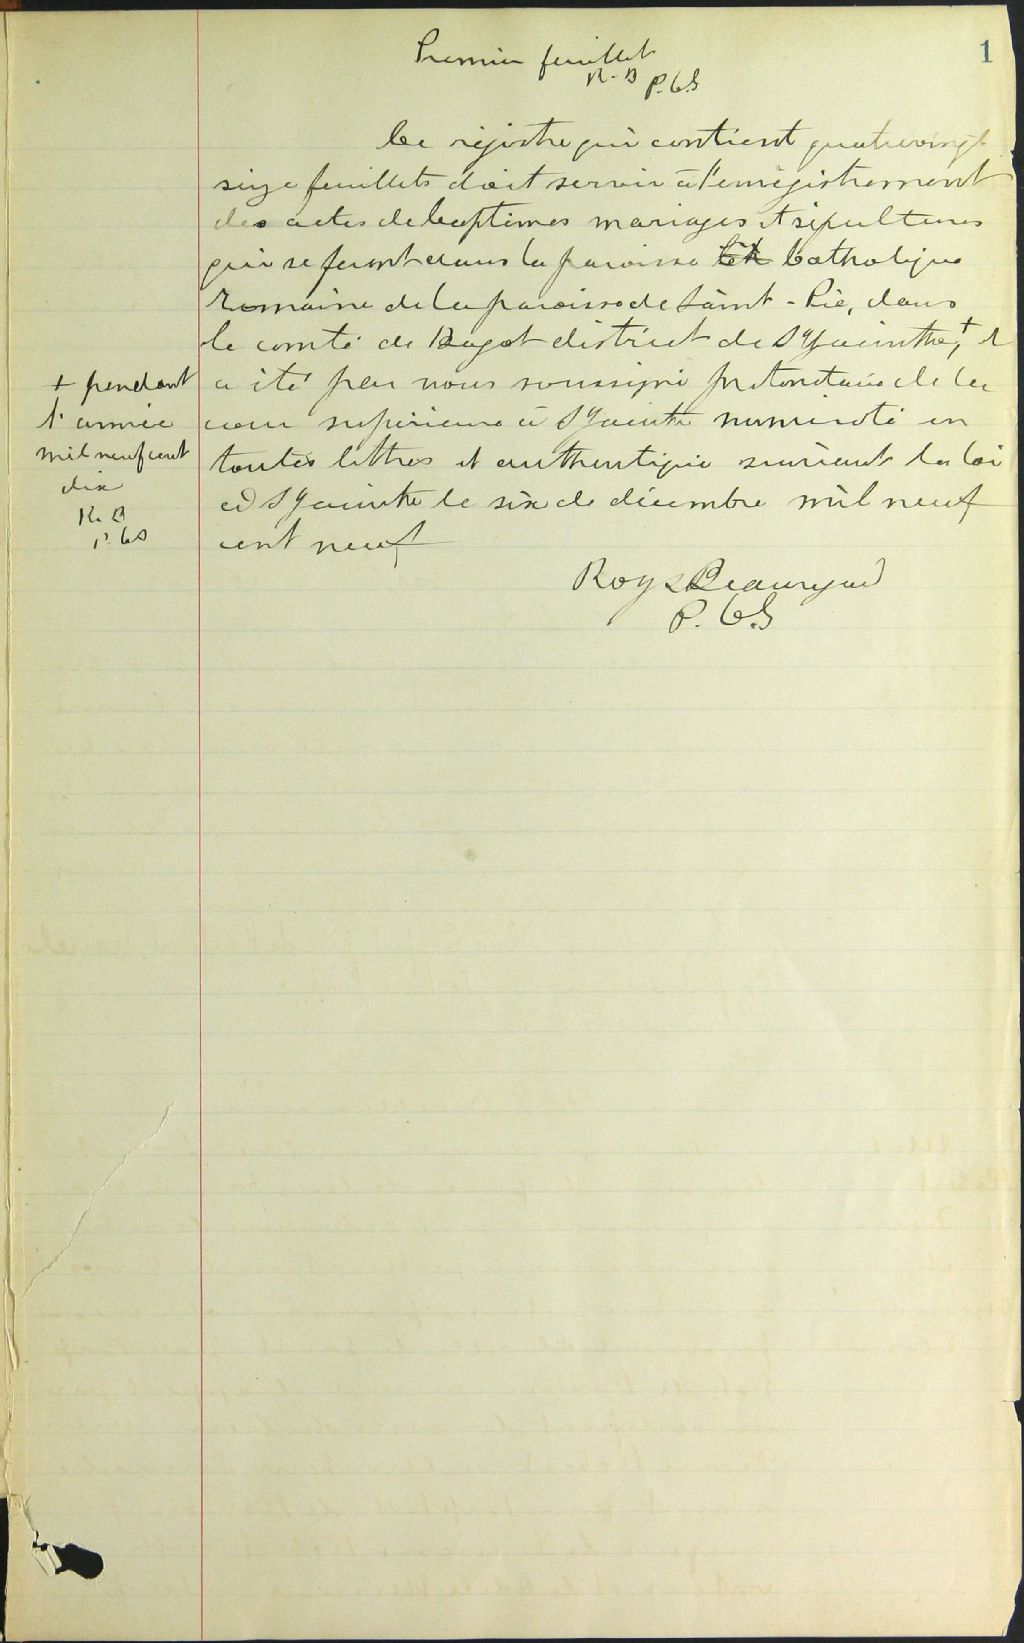 1
Premier feuillet
R. B P. C. S
Ce régistre qui contient quatrevingt
seize feuillets doit servir à l'enrégistrement
des actes de baptêmes mariages et sépultures
qui se feront dans la paroisse Catholique
Romaine de la paroisse de Saint-Pie, dans
le comté de Bagot district de St Hyacinthe, + et
a été par nous soussigné protonotaire de la
cour supérieure à St Hyacinthe numéroté en
toutes lettres et authentiqué suivant la loi
à St Hyacinthe le six de décembre mil neuf
cent neuf
Roy & Beauregard
P. C. S
+ pendant
l'année
mil neuf cent
dix
R. B
P. C. S